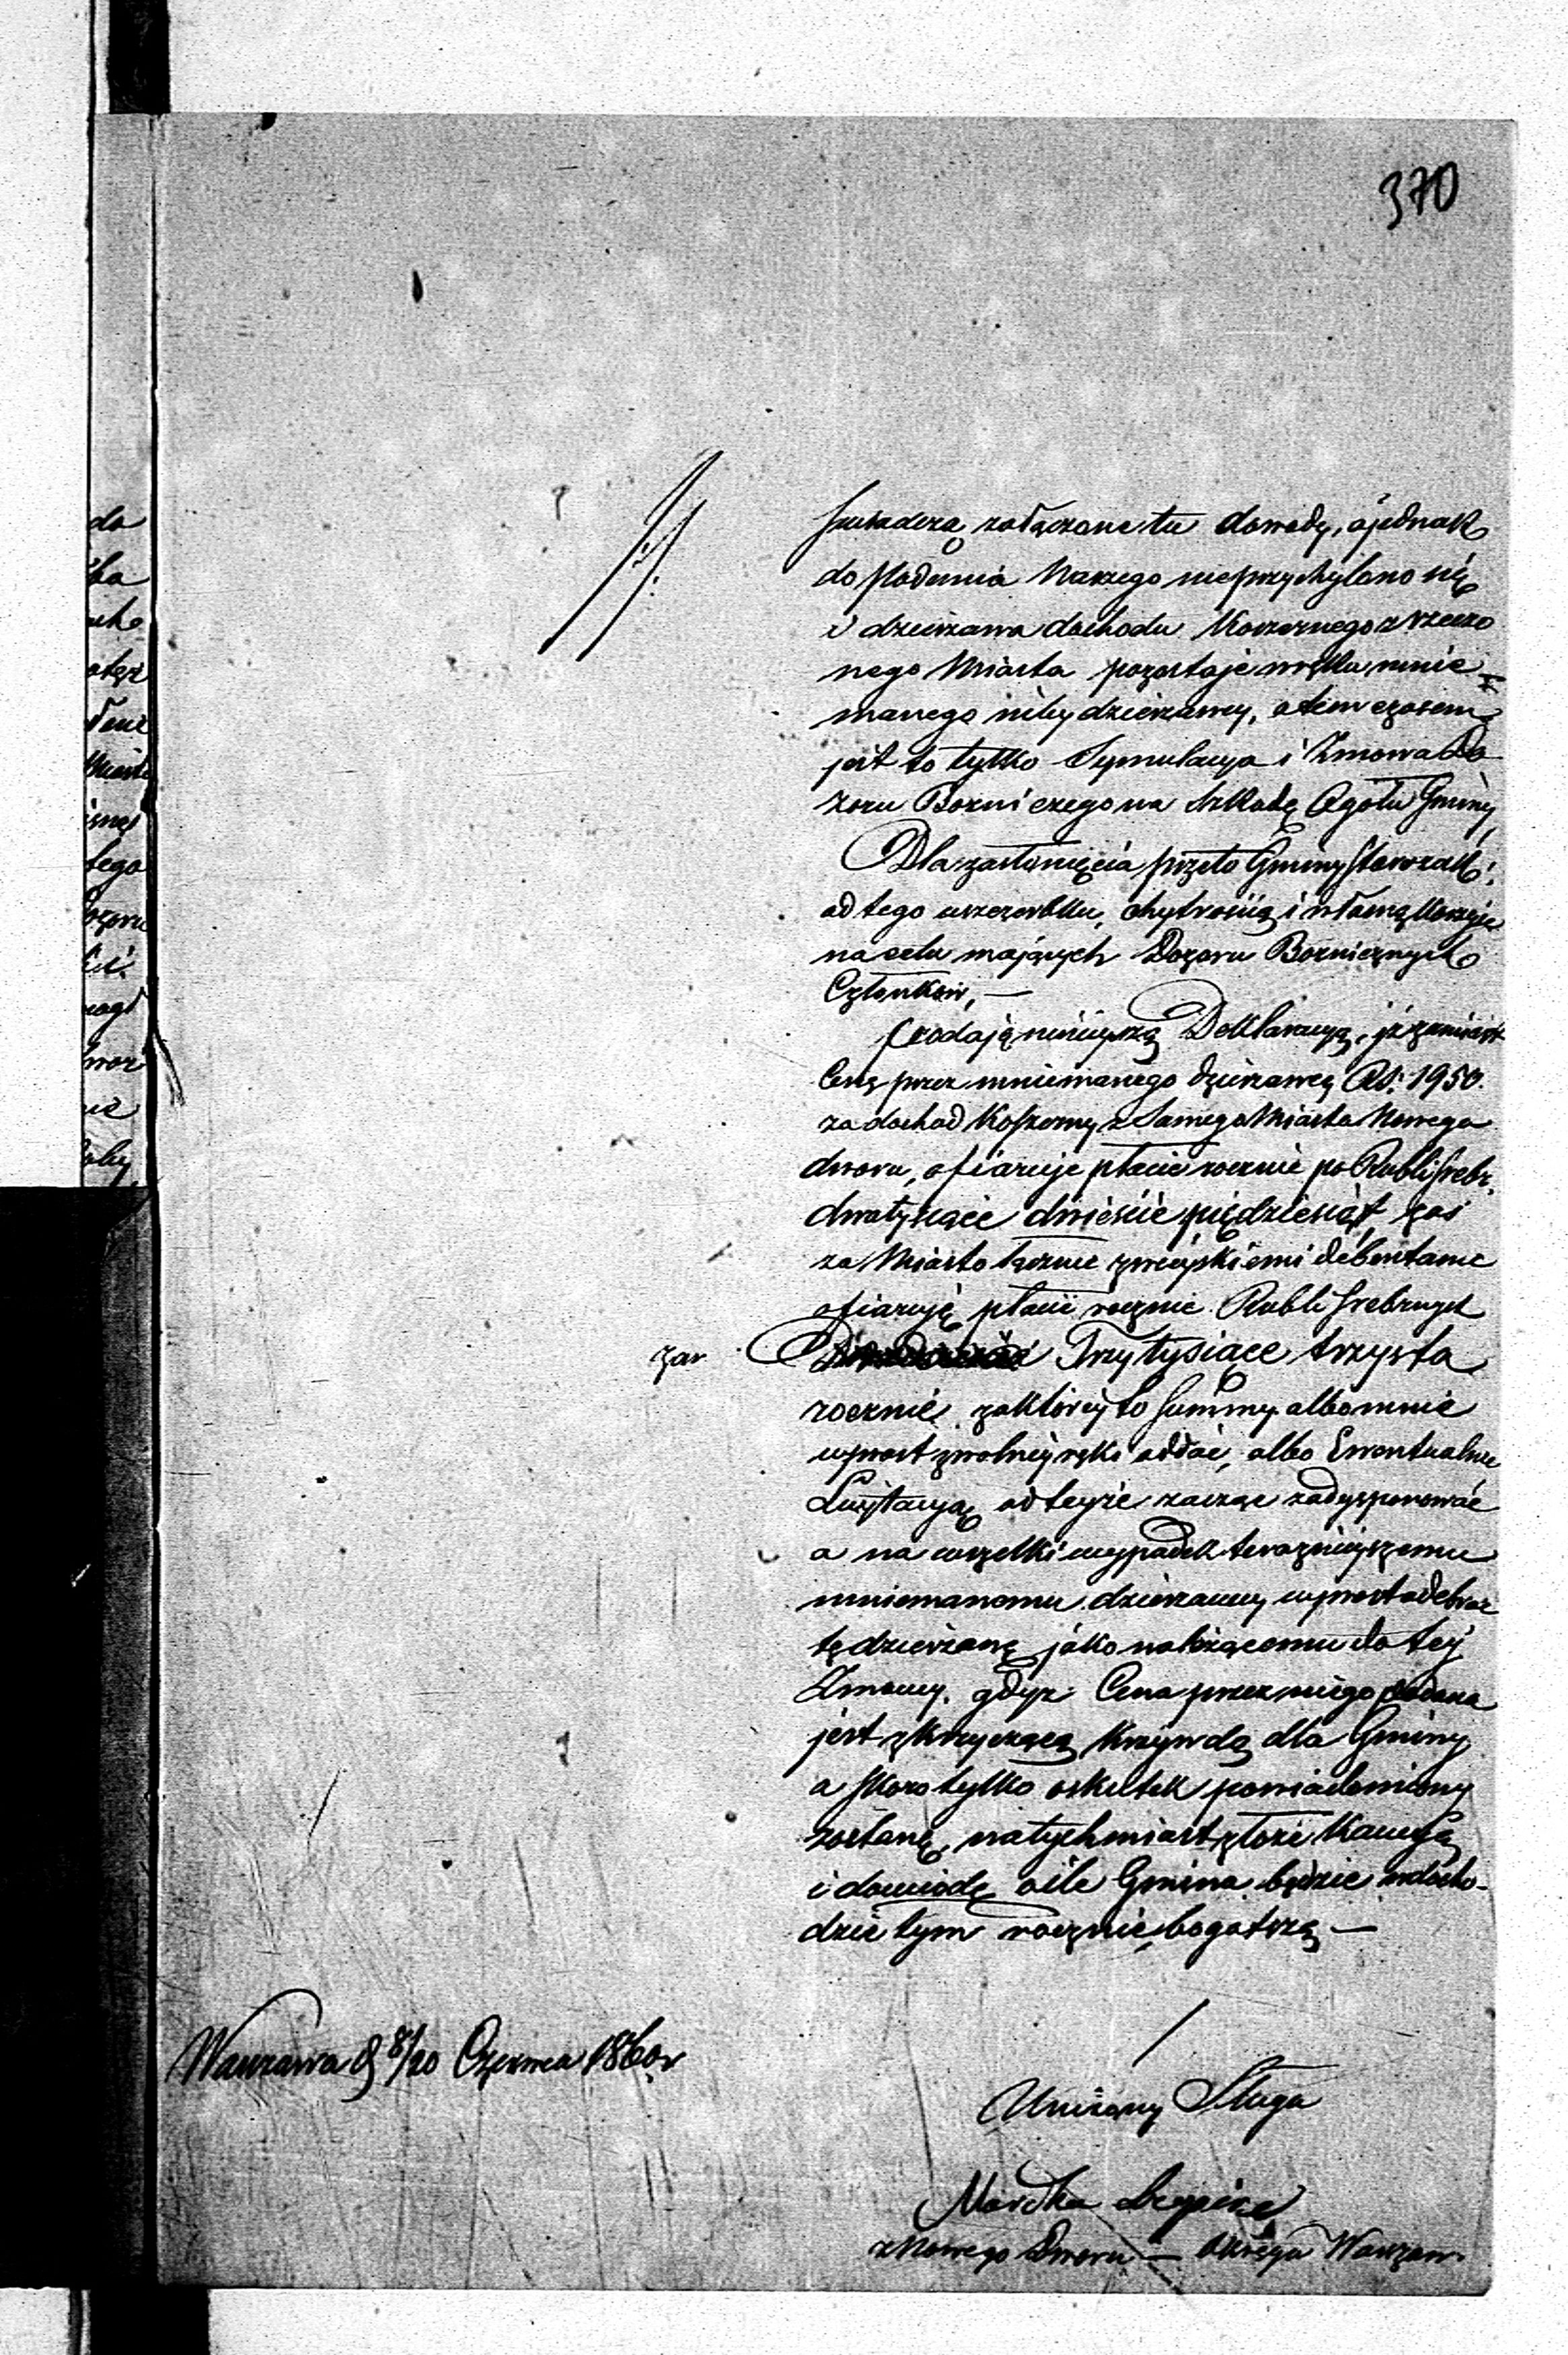 370
świadczą załączone tu dowody, a jednak
do podania Naszego nieprzychylono się
i dzierzawa dochodu Koszernego z rzeczo
nego Miasta pozostaje w ręku mnie=
manego niby dzierzawcy, a tem czasem
jest to tylko Symulacya i Zmowa Do
zoru Bozniczego na szkodę Ogółu Gminy
Dla zasłonięcia przeto Gminy Starozak:
od tego uszczerbku, chytrością i własną korzyść
na celu mających Dozoru Bozniczych
Członków, —
podaję niniejszą Deklaracyą, iż zamiast
Ceny przez mniemanego dzierzawcę Rs. 1950.
za dochod Koszerny z Samego Miasta Nowego
dworu, ofiaruje płacić rocznie po Rubli srebr.
dwa tysiące dwieście piędziesiąt, zaś
za Miasto łącznie z wiejskiemi debentami
ofiaruję płacić rocznie Rubli srebrnych
zar Trzy tysiące trzysta
rocznie, za której to summy albo mnie
wprost z wolnej ręki oddać, albo Ewentualnie
Licytacyą od tejże zacząc zadysponować
a na wszelki wypadek terazniejszemu
mniemanemu dzierzawcy wprost odebrac
tę dzierzawę jako należącemu do tej
Zmowy, gdyz Cena przez niego podana
jest z krzyczącą krzywdą dla Gminy
a skoro tylko o skutek powiadomiony
zostanę, natychmiast złoże Kaucyą
i dowiodę o ile Gmina będzie w docho-
dzie tym rocznie bogatszą —
Warszawa d 8/20 Czerwca 1860 r
Unizony Sługa
Mordka
z Nowego Dworu — Okręgu Warszaw.
do
ba